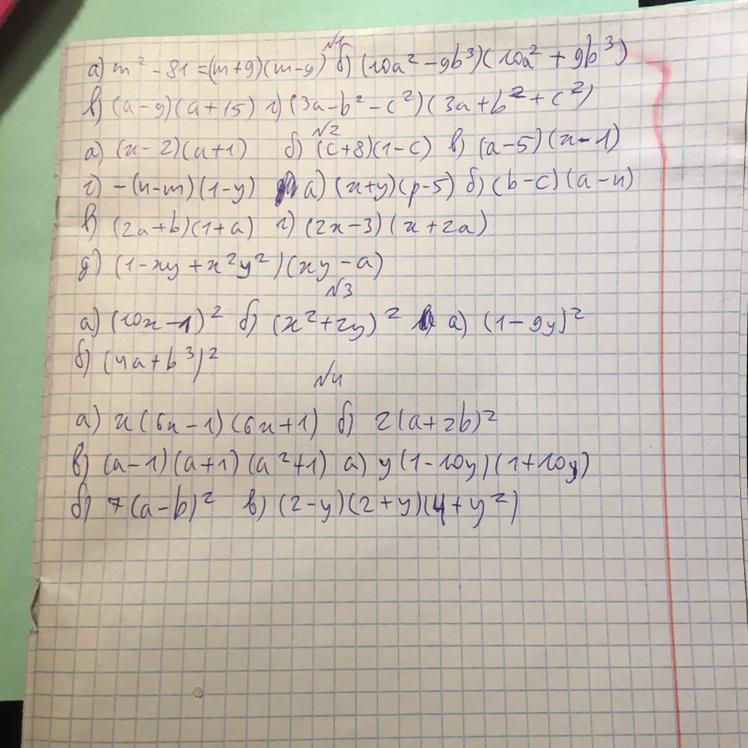 №1
а) m² - 81 = (m+9)(m-9) б) (10a² - 9b³)(10a² + 9b³)
в) (a-9)(a+15) г) (3a-b²-c²)(3a+b²+c²)
№2
а) (x-2)(a+1) б) (c+8)(1-c) в) (a-5)(x-1)
г) -(n-m)(1-y) а) (x+y)(p-5) б) (b-c)(a-n)
в) (2a+b)(1+a) г) (2x-3)(x+2a)
д) (1-xy+x²y²)(xy-a)
№3
а) (10x-1)² б) (x²+2y)² а) (1-9y)²
б) (4a+b³)²
№4
а) x(6x-1)(6x+1) б) 2(a+2b)²
в) (a-1)(a+1)(a²+1) а) y(1-10y)(1+10y)
б) 7(a-b)² в) (2-y)(2+y)(4+y²)